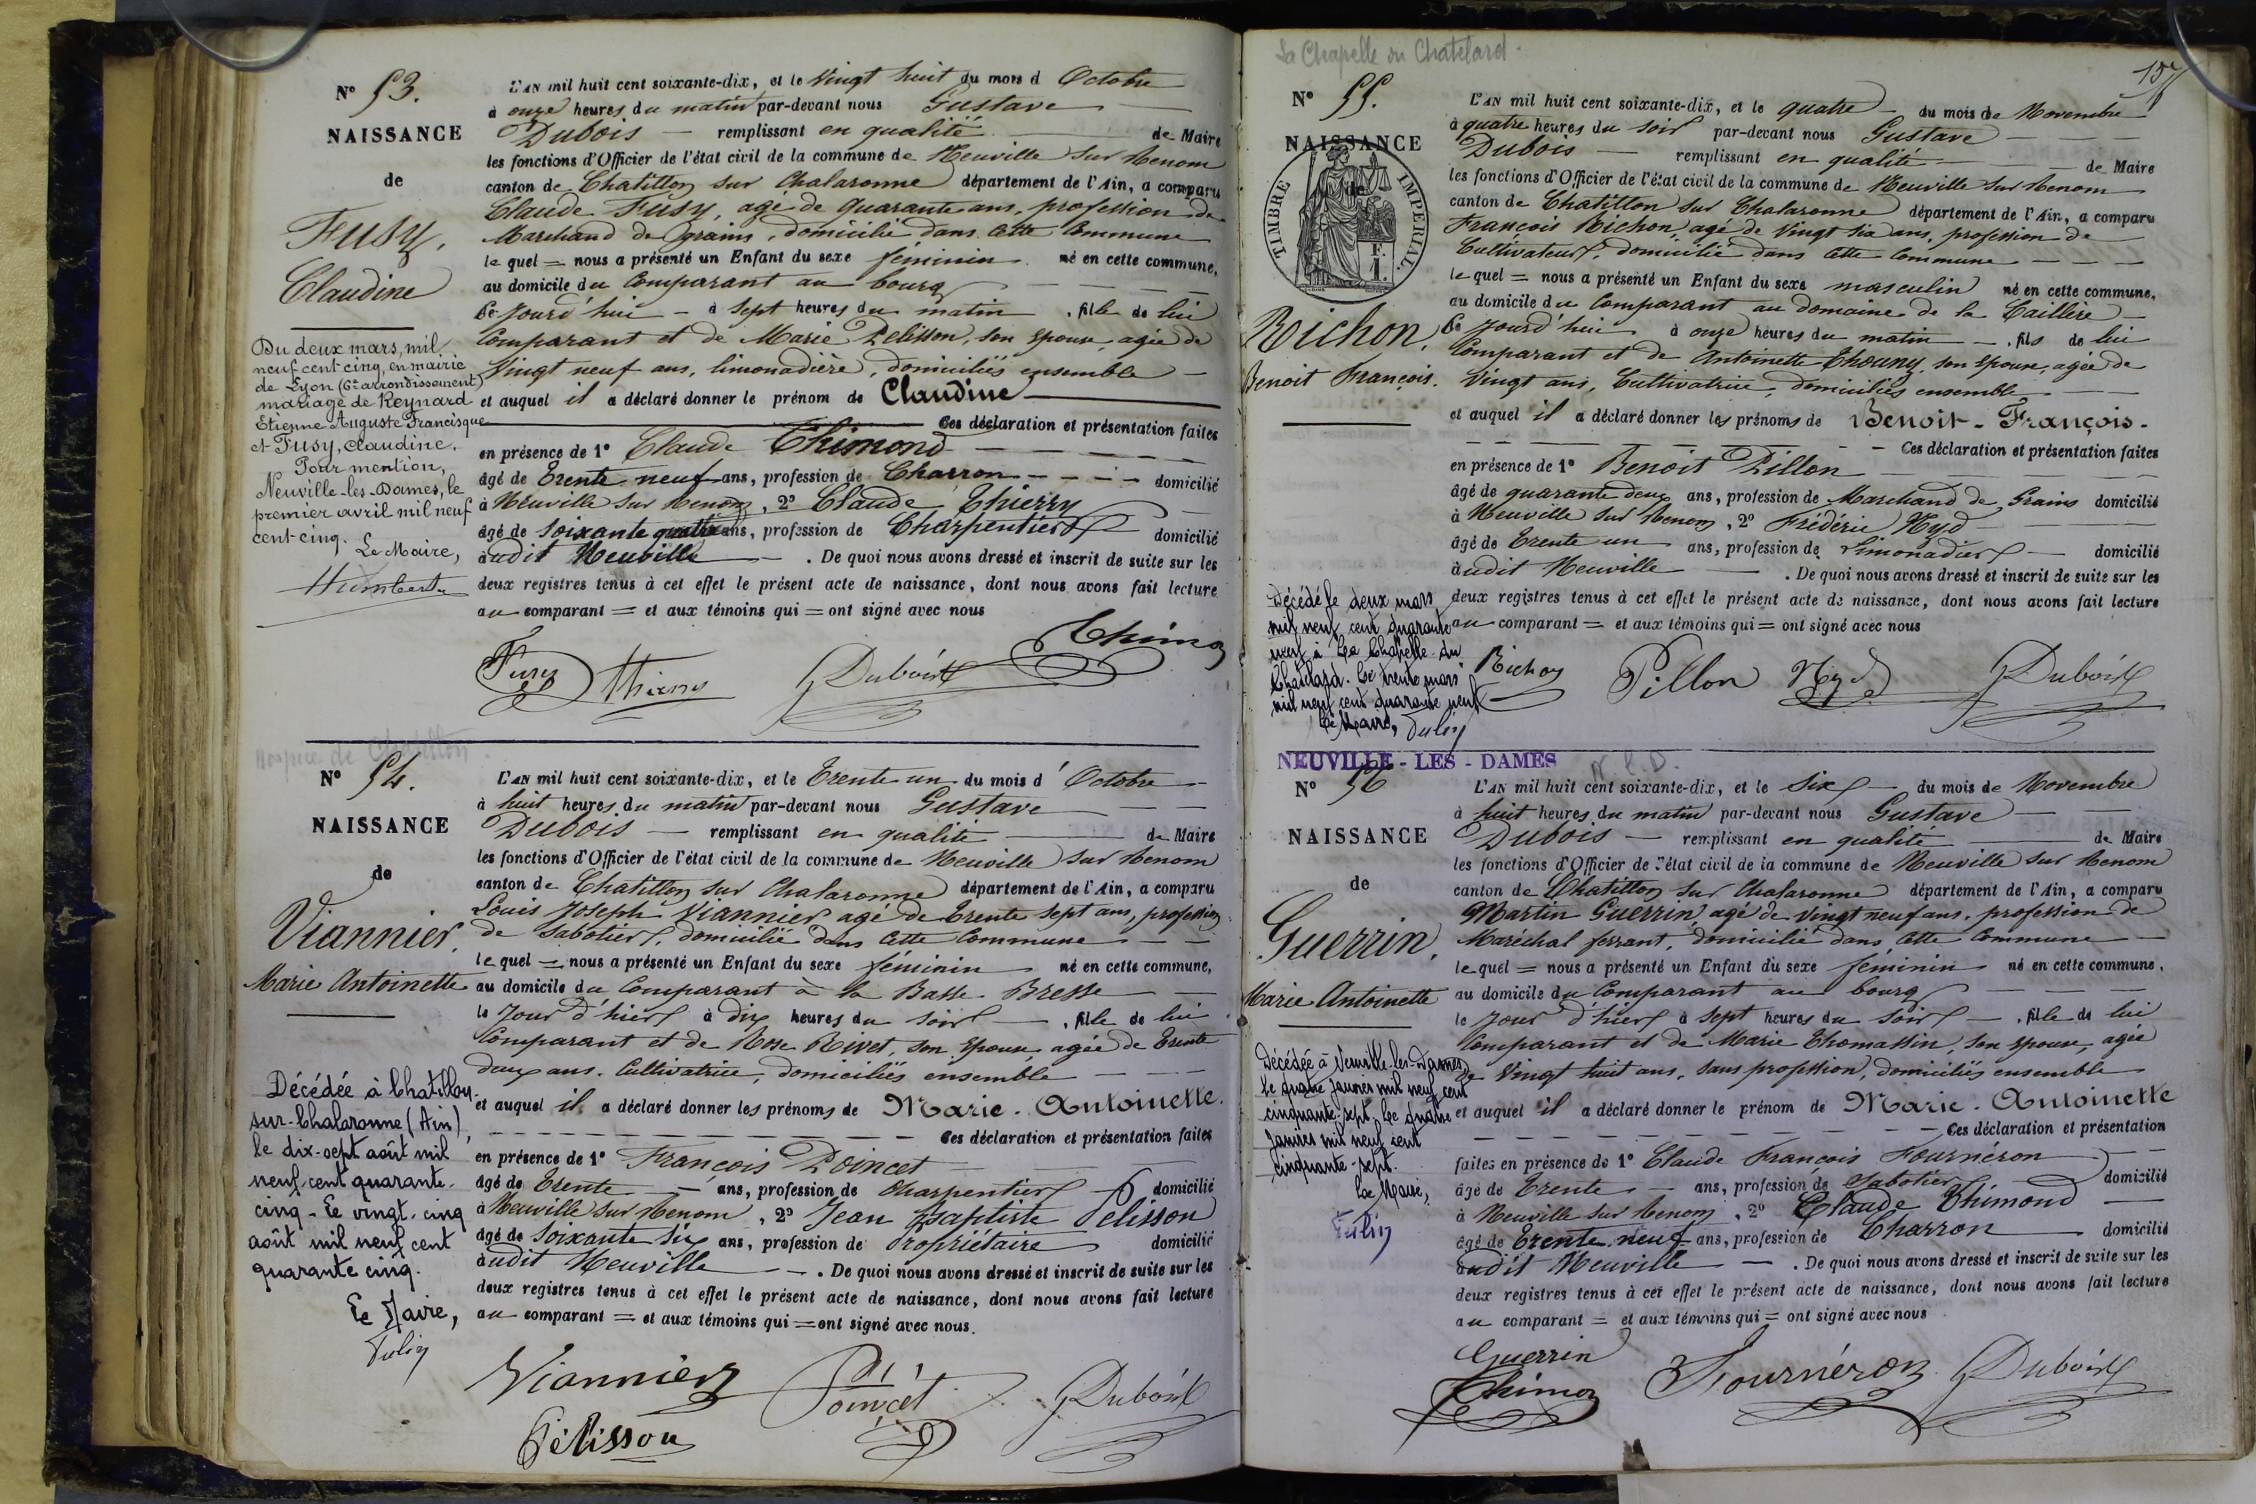 N° 53.
NAISSANCE
de
Fusy,
Claudine
Du deux mars, mil
neuf cent cinq, en mairie
de Lyon (6e arrondissement)
mariage de Reynard
Etienne Auguste Francisque
et Fusy, Claudine.
Pour mention,
Neuville-les-Dames, le
premier avril mil neuf
cent cinq.
Le Maire,
Humbert
L'AN mil huit cent soixante-dix, et le Vingt huit du mois d Octobre
à onze heures du matin par-devant nous Gustave
Dubois — remplissant en qualité de Maire
les fonctions d'Officier de l'état civil de la commune de Neuville sur Renom
canton de Chatillon sur Chalaronne département de l'Ain, a comparu
Claude Fusy, agé de quarante ans, profession de
Marchand de grains, domicilié dans cette Commune
le quel = nous a présenté un Enfant du sexe féminin né en cette commune,
au domicile du Comparant au bourg
Ce Jourd'hui — à sept heures du matin , fille de lui
Comparant et de Marie Pelisson, son épouse, agée de
Vingt neuf ans, limonadière, domiciliés ensemble —
et auquel il a déclaré donner le prénom de Claudine
Ces déclaration et présentation faites
en présence de 1° Claude Thimond
âgé de Trente neuf ans, profession de Charron domicilié
à Neuville sur Renom, 2° Claude Thierry
âgé de soixante quatre ans, profession de Charpentier domicilié
audit Neuville — . De quoi nous avons dressé et inscrit de suite sur les
deux registres tenus à cet effet le présent acte de naissance, dont nous avons fait lecture
au comparant = et aux témoins qui = ont signé avec nous
Fusy Thierry GDubois Thimon
Hospice de Chatillon
N° 54.
NAISSANCE
de
Viannier,
Marie Antoinette
Décédée à Chatillon-
sur-Chalaronne (Ain),
le dix-sept août mil
neuf cent quarante-
cinq - Le vingt-cinq
août mil neuf cent
quarante cinq.
Le Maire,
L'AN mil huit cent soixante-dix, et le Trente un du mois d' Octobre
à huit heures du matin par-devant nous Gustave
Dubois — remplissant en qualité de Maire
les fonctions d'Officier de l'état civil de la commune de Neuville sur Renom
canton de Chatillon sur Chalaronne département de l'Ain, a comparu
Louis Joseph Viannier agé de Trente sept ans, profession
de Sabotier, domicilié dans cette Commune
le quel = nous a présenté un Enfant du sexe féminin né en cette commune,
au domicile du Comparant à la Basse Bresse
le Jour d'hier à dix heures du soir , fille de lui
Comparant et de Rose Rivet, son épouse agée de Trente
deux ans. Cultivatrice, domiciliés ensemble
et auquel il a déclaré donner les prénoms de Marie-Antoinette.
Ces déclaration et présentation faites
en présence de 1° François Poincet
âgé de Trente — ans, profession de Charpentier domicilié
à Neuville sur Renom, 2° Jean Baptiste Pelisson
âgé de soixante six ans, profession de Propriétaire domicilié
audit Neuville — . De quoi nous avons dressé et inscrit de suite sur les
deux registres tenus à cet effet le présent acte de naissance, dont nous avons fait lecture
au comparant = et aux témoins qui = ont signé avec nous.
Viannier Poinçet GDubois
Pélisson
La Chapelle du Chatelard.
157
N° 55.
NAISSANCE
de
TIMBRE IMPERIAL
F.
1.
Richon,
Benoit François.
Décédé le deux mars
mil neuf cent quarante
neuf à La Chapelle du
Chatelard. Le trente mars
mil neuf cent quarante neuf
Le Maire,
L'AN mil huit cent soixante-dix, et le quatre du mois de Novembre
à quatre heures du soir par-devant nous Gustave
Dubois — remplissant en qualité de Maire
les fonctions d'Officier de l'état civil de la commune de Neuville sur Renom
canton de Châtillon sur Chalaronne département de l'Ain, a comparu
François Richon, agé de Vingt six ans, profession de
Cultivateur, domicilié dans cette Commune
le quel = nous a présenté un Enfant du sexe masculin né en cette commune,
au domicile du Comparant au domaine de la Caillère
Ce Jourd'hui à onze heures du matin — , fils de lui
Comparant et de Antoinette Chouny, son épouse, agée de
Vingt ans, Cultivatrice, domiciliés ensemble
et auquel il a déclaré donner les prénoms de Benoit-François.
Ces déclaration et présentation faites
en présence de 1° Benoit Pillon
âgé de quarante deux ans, profession de Marchand de Grains domicilié
à Neuville sur Renom, 2° Frédéric Nyd
âgé de Trente un ans, profession de Limonadier domicilié
audit Neuville — . De quoi nous avons dressé et inscrit de suite sur les
deux registres tenus à cet effet le présent acte de naissance, dont nous avons fait lecture
au comparant = et aux témoins qui = ont signé avec nous
Richon Pillon Nyd GDubois
NEUVILLE-LES-DAMES N.L.D.
N° 56
NAISSANCE
de
Guerrin,
Marie Antoinette
Décédée à Neuville-les-Dames
le quinze janvier mil neuf cent
cinquante-sept. Le quinze
janvier mil neuf cent
cinquante-sept.
Le Maire,
L'AN mil huit cent soixante-dix, et le six du mois de Novembre
à huit heures du matin par-devant nous Gustave
Dubois — remplissant en qualité de Maire
les fonctions d'Officier de l'état civil de la commune de Neuville sur Renom
canton de Châtillon sur Chalaronne département de l'Ain, a comparu
Martin Guerrin, agé de vingt neuf ans, profession de
Maréchal ferrant, domicilié dans cette Commune
le quel = nous a présenté un Enfant du sexe féminin né en cette commune,
au domicile du Comparant au bourg
le Jour d'hier à sept heures du soir — , fille de lui
Comparant et de Marie Thomassin, son épouse, agée
de Vingt huit ans, sans profession, domiciliés ensemble
et auquel il a déclaré donner le prénom de Marie-Antoinette
Ces déclaration et présentation
faites en présence de 1° Claude François Fournéron
âgé de Trente — ans, profession de Sabotier domicilié
à Neuville sur Renom, 2° Claude Thimond
âgé de Trente neuf ans, profession de Charron domicilié
audit Neuville — . De quoi nous avons dressé et inscrit de suite sur les
deux registres tenus à cet effet le présent acte de naissance, dont nous avons fait lecture
au comparant = et aux témoins qui = ont signé avec nous
Guerrin
Thimon Fournéron GDubois